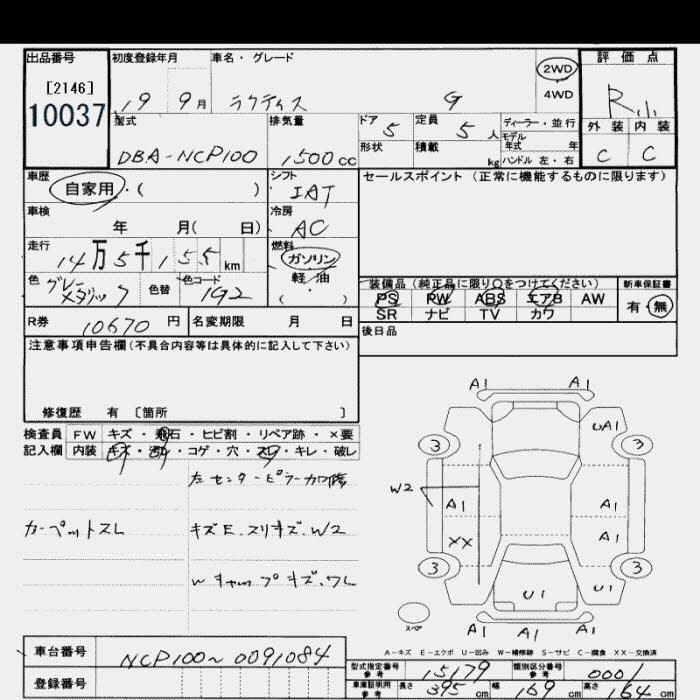 出品番号 初度登録年月 車名・グレード 評価点
[2146] 2WD
10037 19 9月 ラクティス G 4WD R小
型式 排気量 ドア 定員 ディーラー・並行 外装 内装
DBA-NCP100 1500cc 5 5人 モデル年式 年 C C
形状 積載 kg ハンドル 左・右
車歴 シフト セールスポイント(正常に機能するものに限ります)
自家用・( ) IAT
車検 冷房
年 月( 日) AC
走行 燃料
14万5千155km ガソリン
色 色替 色コード 軽油 装備品(純正品に限り○をつけてください) 新車保証書
グレーメタリック 1G2 ( ) PS PW ABS エアB AW 有・無
SR ナビ TV カワ
R券 10670円 名変期限 月 日 後日品
注意事項申告欄(不具合内容等は具体的に記入して下さい)
修復歴 有 〔箇所 〕
検査員 FW キズ・飛石・ヒビ割・リペア跡・×要
記入欄 内装 キズ・汚レ・コゲ・穴・スレ・キレ・破レ
左センターピラー加修
カーペットスレ キズE.スリキズ.W2
キズ.
A1 A1
UA1
3 3
W2
A1 A1
XX A1
3 3
U1 U1
スペア
A1 A1 A1
A-キズ E-エクボ U-凹み W-補修跡 S-サビ C-腐食 XX-交換済
車台番号 NCP100~0091084
型式指定番号 参考 15179 類別区分番号 参考 0001
登録番号
車庫証明用 参考 長さ 395cm 幅 169cm 高さ 164cm